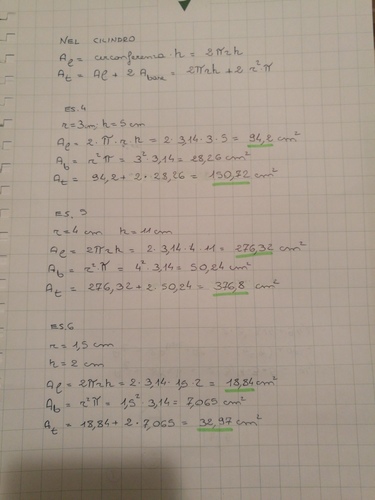 NEL CILINDRO
Aℓ = circonferenza · h = 2πrh
At = Aℓ + 2 Abase = 2πrh + 2 r²π
ES.4
r = 3cm h = 5 cm
Aℓ = 2 · π · r · h = 2 · 3,14 · 3 · 5 = 94,2 cm²
Ab = r²π = 3² · 3,14 = 28,26 cm²
At = 94,2 + 2 · 28,26 = 150,72 cm²
ES. 5
r = 4 cm h = 11 cm
Aℓ = 2πrh = 2 · 3,14 · 4 · 11 = 276,32 cm²
Ab = r²π = 4² · 3,14 = 50,24 cm²
At = 276,32 + 2 · 50,24 = 376,8 cm²
ES.6
r = 1,5 cm
h = 2 cm
Aℓ = 2πrh = 2 · 3,14 · 1,5 · 2 = 18,84 cm²
Ab = r²π = 1,5² · 3,14 = 7,065 cm²
At = 18,84 + 2 · 7,065 = 32,97 cm²